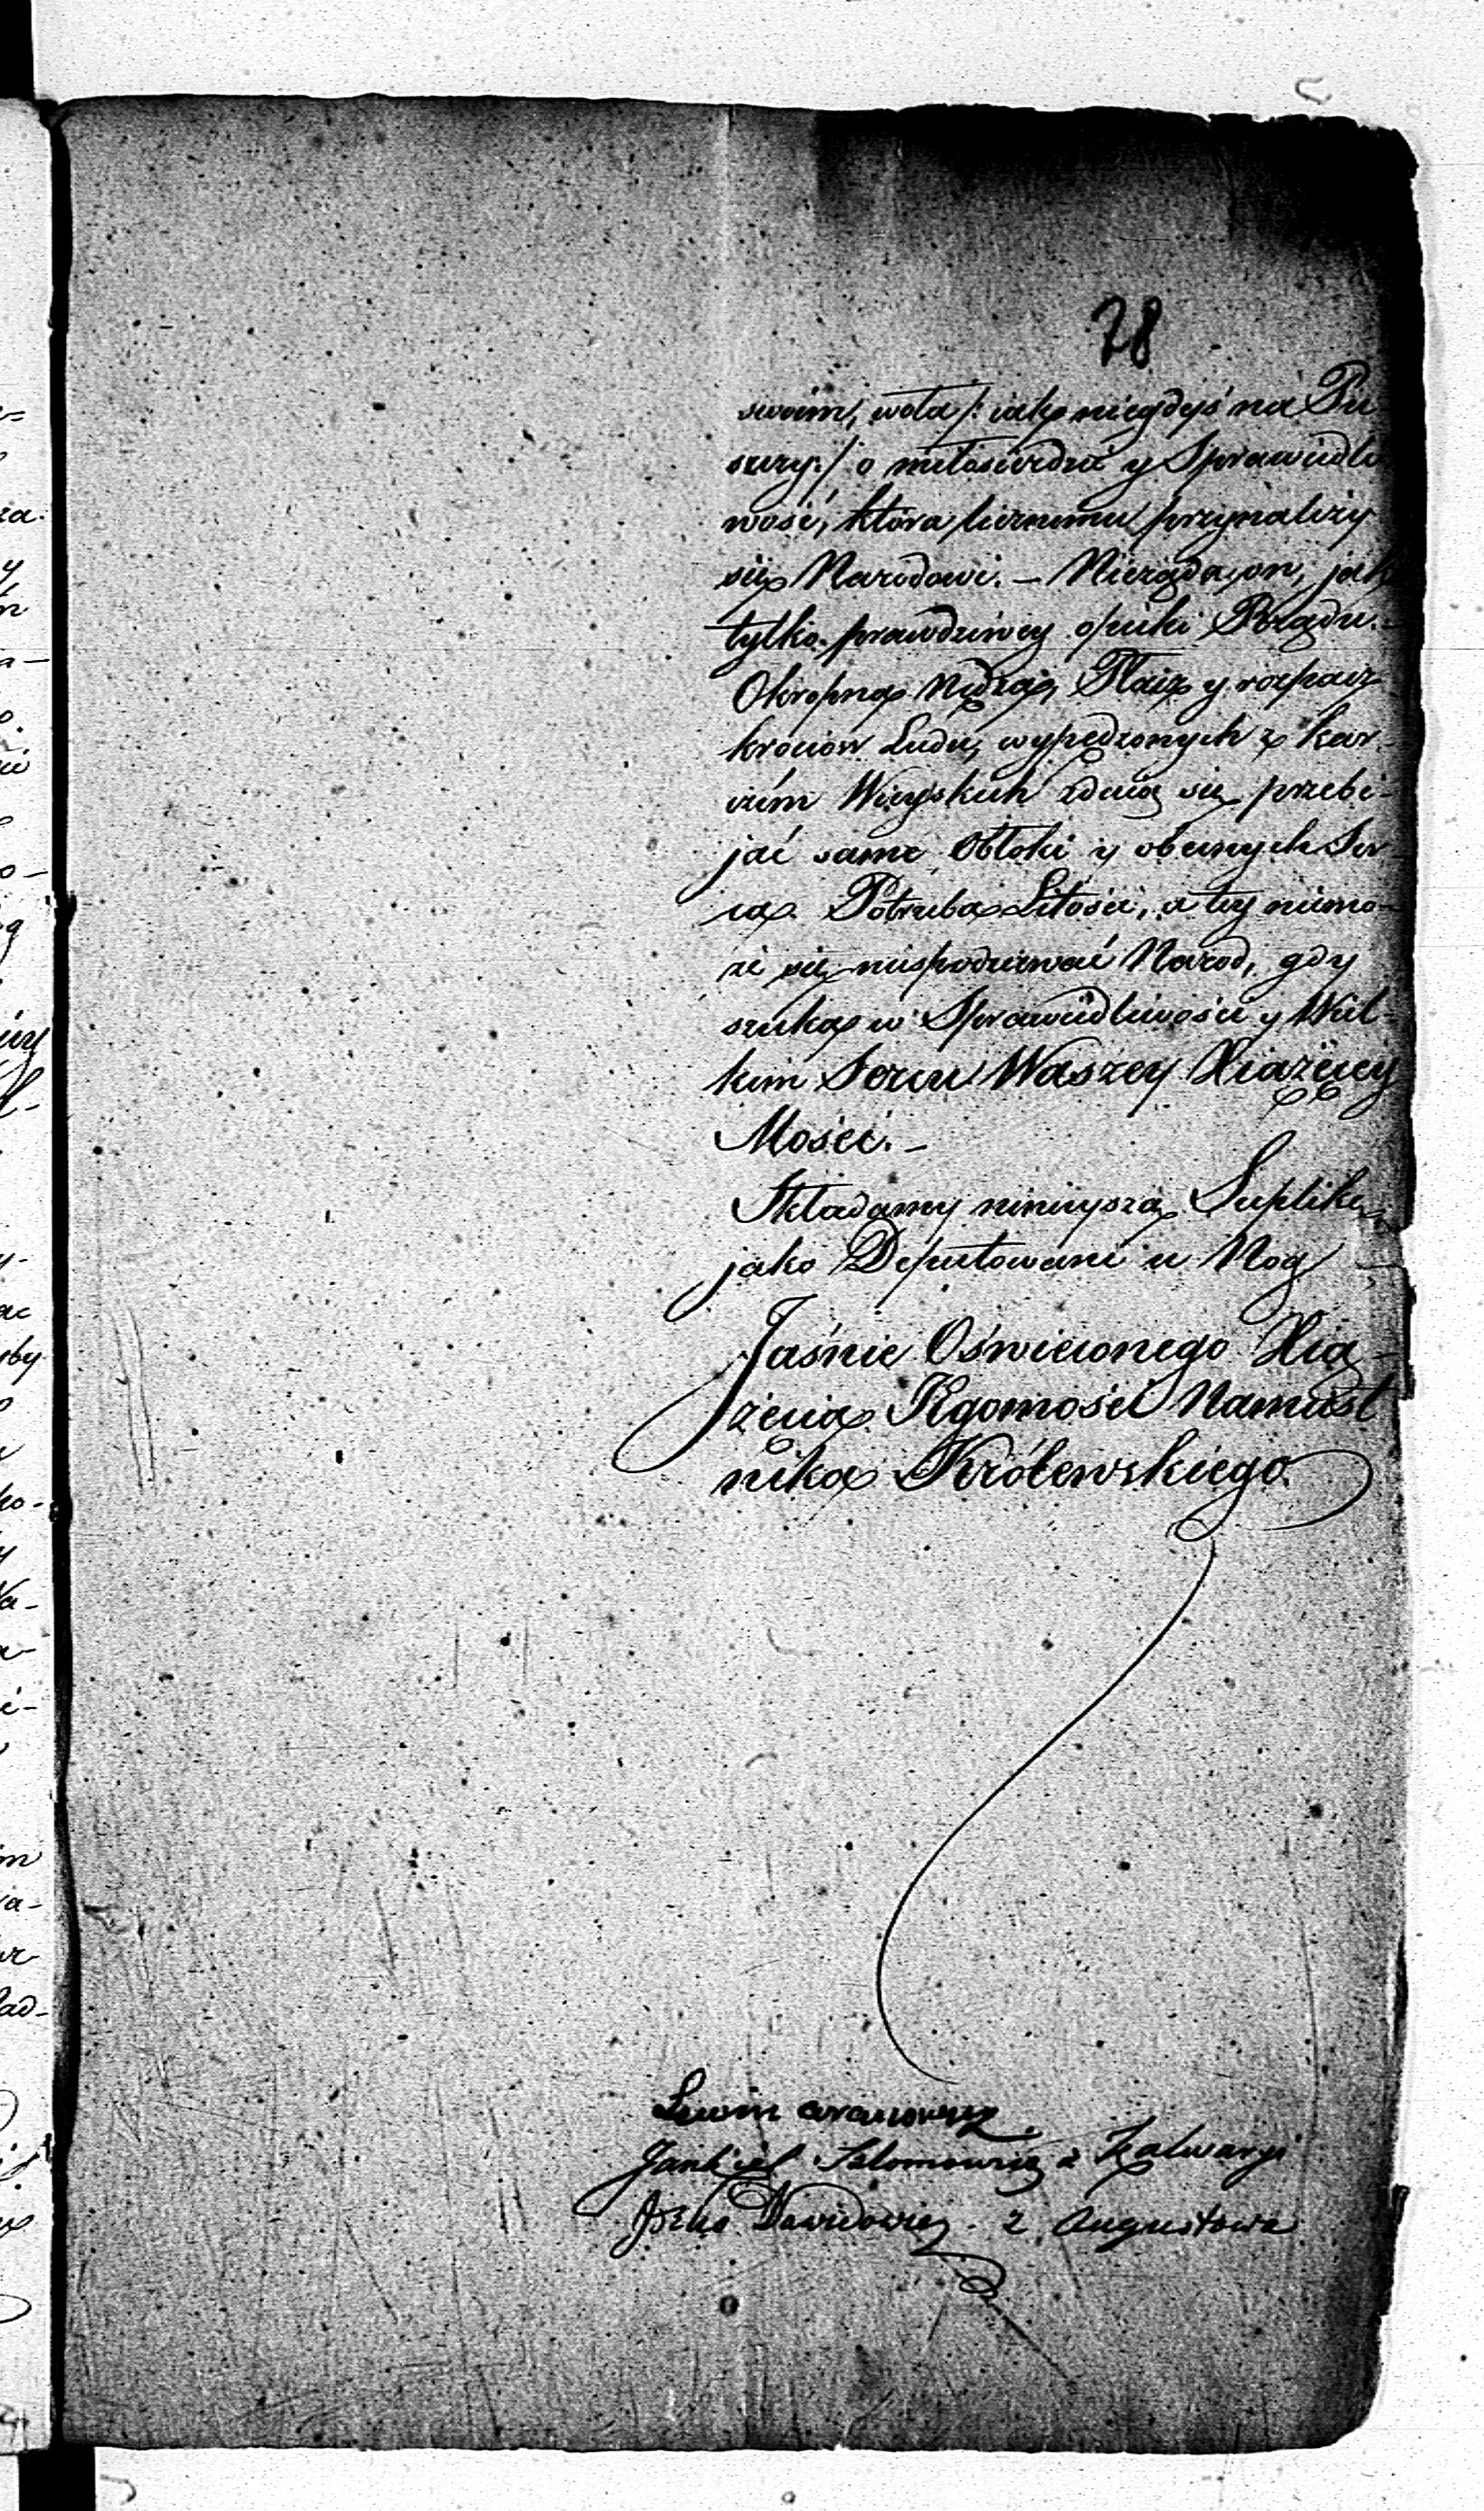 28
swoim, woła /: iak niegdyś na Pu
szczy :/ o miłosierdzie y Sprawiedli
wość, która licznemu przynależy
się Narodowi. — Nieżąda on, jak
tylko prawdziwey opieki Rządu. —
Okropna Nędza, Płacz y rozpacz
krociow Ludu, wypędzonych z kar-
czém Wieyskich zdaią się przebi-
jać same Obłoki y obecnych Ser-
ca. Potrzeba Litości, a tey niemo-
że się niespodziewać Naród, gdy
szuka w Sprawiedliwości y Wiel-
kim Sercu Waszey Xiążęcey
Mości. —
Składamy ninieyszą Suplikę
jako Deputowani u Nog
Jaśnie Oświeconego Xią-
żęcia Jegomości Namiest
nika Królewskiego.
Jankiel Szlomowicz z Kalwaryi
Dawidowicz z Augustowa